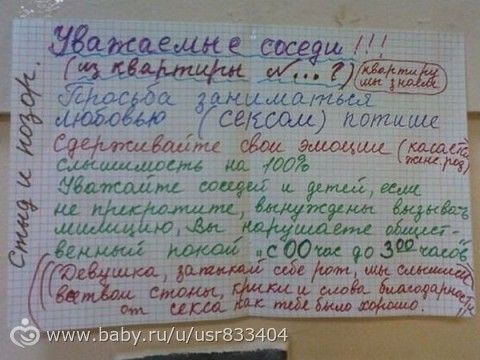 Уважаемые соседи!!!
(из квартиры №...?)
(квартиру мы знаем)
Просьба заниматься
любовью (сексом) потише
Сдерживайте свои эмоции (касается женс. род)
слышимость на 100%
Уважайте соседей и детей, если
не прекратите, вынуждены вызывать
милицию, Вы нарушаете общест-
венный покой "с 00 час до 300 часов"
(Девушка, затыкай себе рот, мы слышим
все твои стоны, крики и слова благодарности
от секса как тебе было хорошо.!!
Стыд и позор.
www.baby.ru/u/usr833404